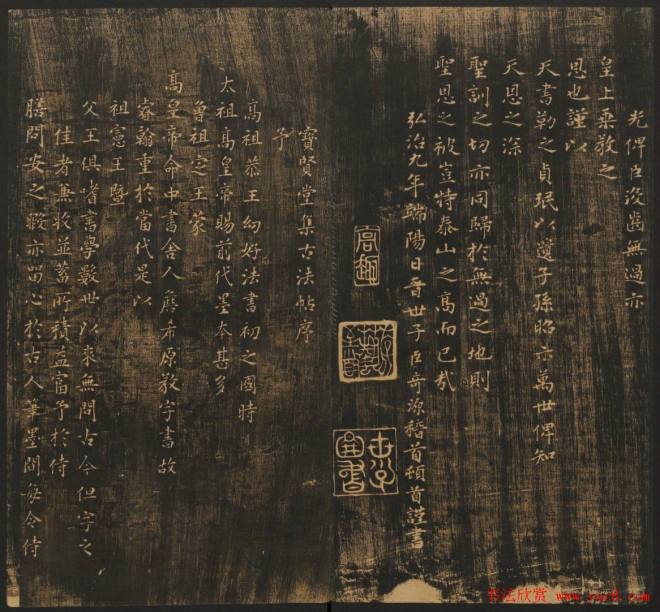 光俾臣没齒無過亦
皇上乘教之
恩也謹以
天書勒之貞珉以遺子孫昭示萬世俾知
天恩之深
聖訓之切亦同歸於無過之地則
聖恩之被豈特泰山之高而已哉
弘治九年端陽日晉世子臣奇源稽首頓首謹書
寶賢堂集古法帖序
予
高祖恭王幼好法書初之國時
太祖高皇帝賜前代墨本甚多
曾祖定王蒙
高皇帝命中書舍人詹希原教字書故
睿翰重於當代是以
祖憲王暨
父王俱嗜書學數世以來無間古今但字之
佳者無收並蓄所積益富予於侍
膳問安之暇亦留心於古人筆墨間每令侍
书法欣赏